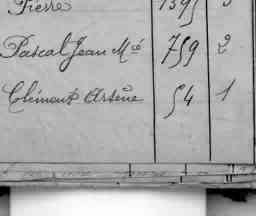 Pierre 1395 3
Pascal Jean Mce 759 2
Clément Arsène 54 1